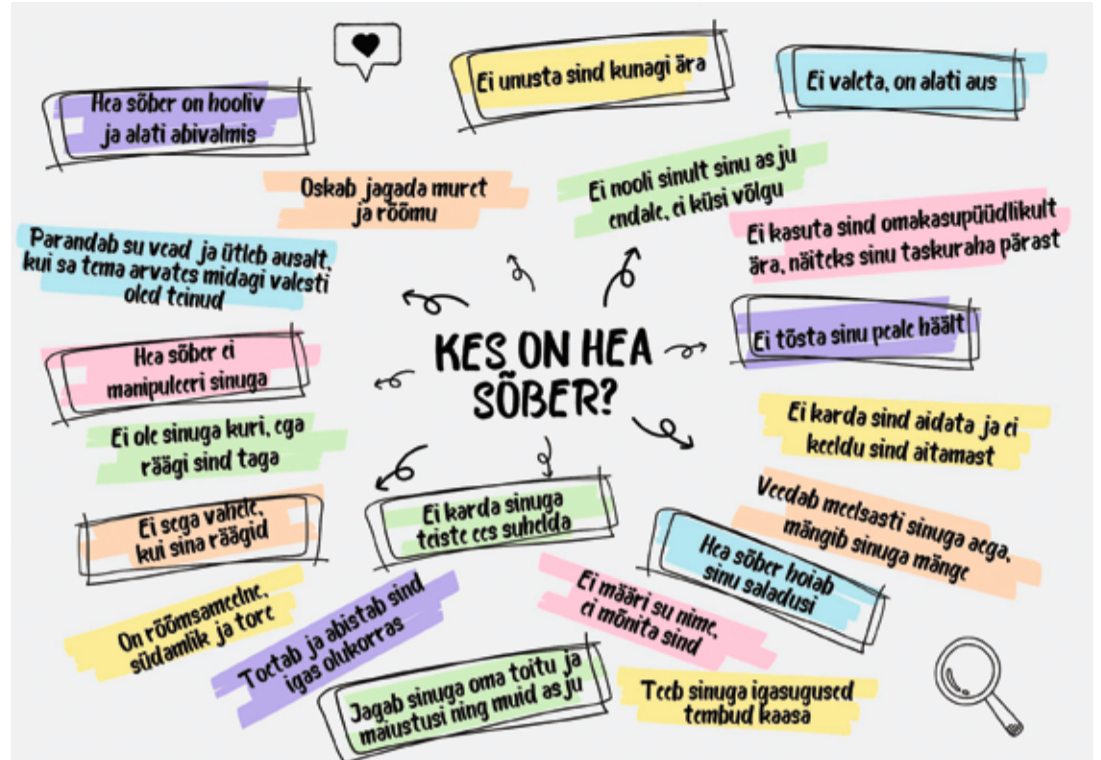 Ei unusta sind kunagi ära
Ei valeta, on alati aus
Hea sõber on hooliv
ja alati abivalmis
Oskab jagada muret
ja rõõmu
Ei nooli sinult sinu asju
endale, ei küsi võlgu
Ei kasuta sind omakasupüüdlikult
ära, näiteks sinu taskuraha pärast
Parandab su vead ja ütleb ausalt,
kui sa tema arvates midagi valesti
oled teinud
Ei tõsta sinu peale häält
KES ON HEA
SÕBER?
Hea sõber ei
manipuleeri sinuga
Ei karda sind aidata ja ei
keeldu sind aitamast
Ei ole sinuga kuri, ega
räägi sind taga
Ei sega vahele,
kui sina räägid
Ei karda sinuga
teiste ees suhelda
Veedab meelsasti sinuga aega,
mängib sinuga mänge
Hea sõber hoiab
sinu saladusi
On rõõmsameelne,
südamlik ja tore
Toetab ja abistab sind
igas olukorras
Ei määri su nime,
ei mõnita sind
Jagab sinuga oma toitu ja
maiustusi ning muid asju
Teeb sinuga igasugused
tembud kaasa